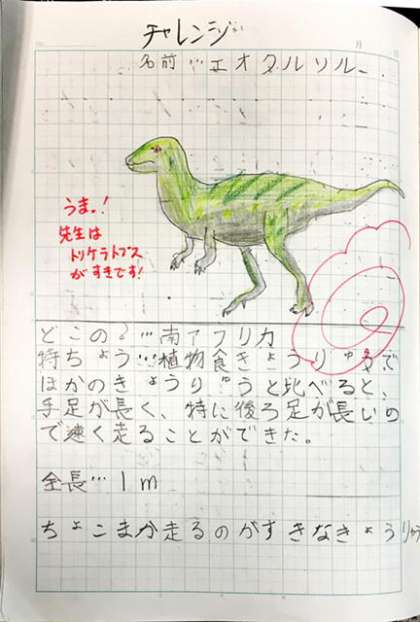 チャレンジ
月 日
名前…エオクルソル
うまっ!
先生は
トリケラトプス
がすきです!
どこの?…南アフリカ
特ちょう…植物食きょうりゅうで
ほかのきょうりゅうと比べると、
手足が長く、特に後ろ足が長いの
で速く走ることができた。
全長…1m
ちょこまか走るのがすきなきょうりゅう